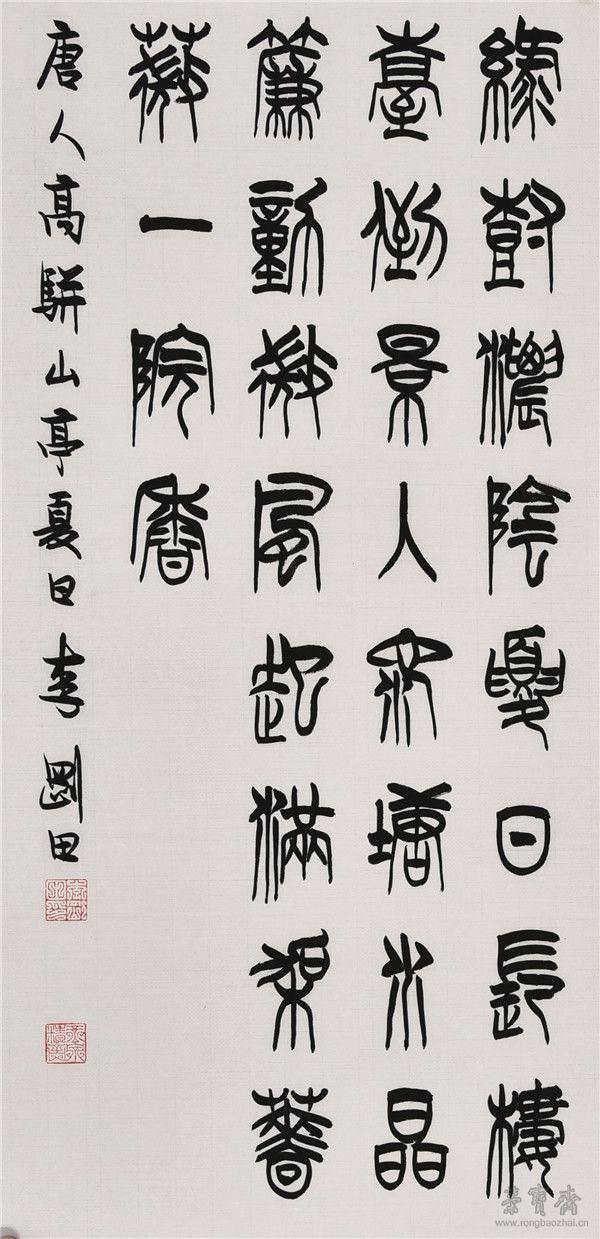 綠樹濃陰夏日長樓
臺倒景入池塘水晶
簾動微風起滿架薔
薇一院香
唐人高駢山亭夏日李剛田
榮寶齋
www.rongbaozhai.cn